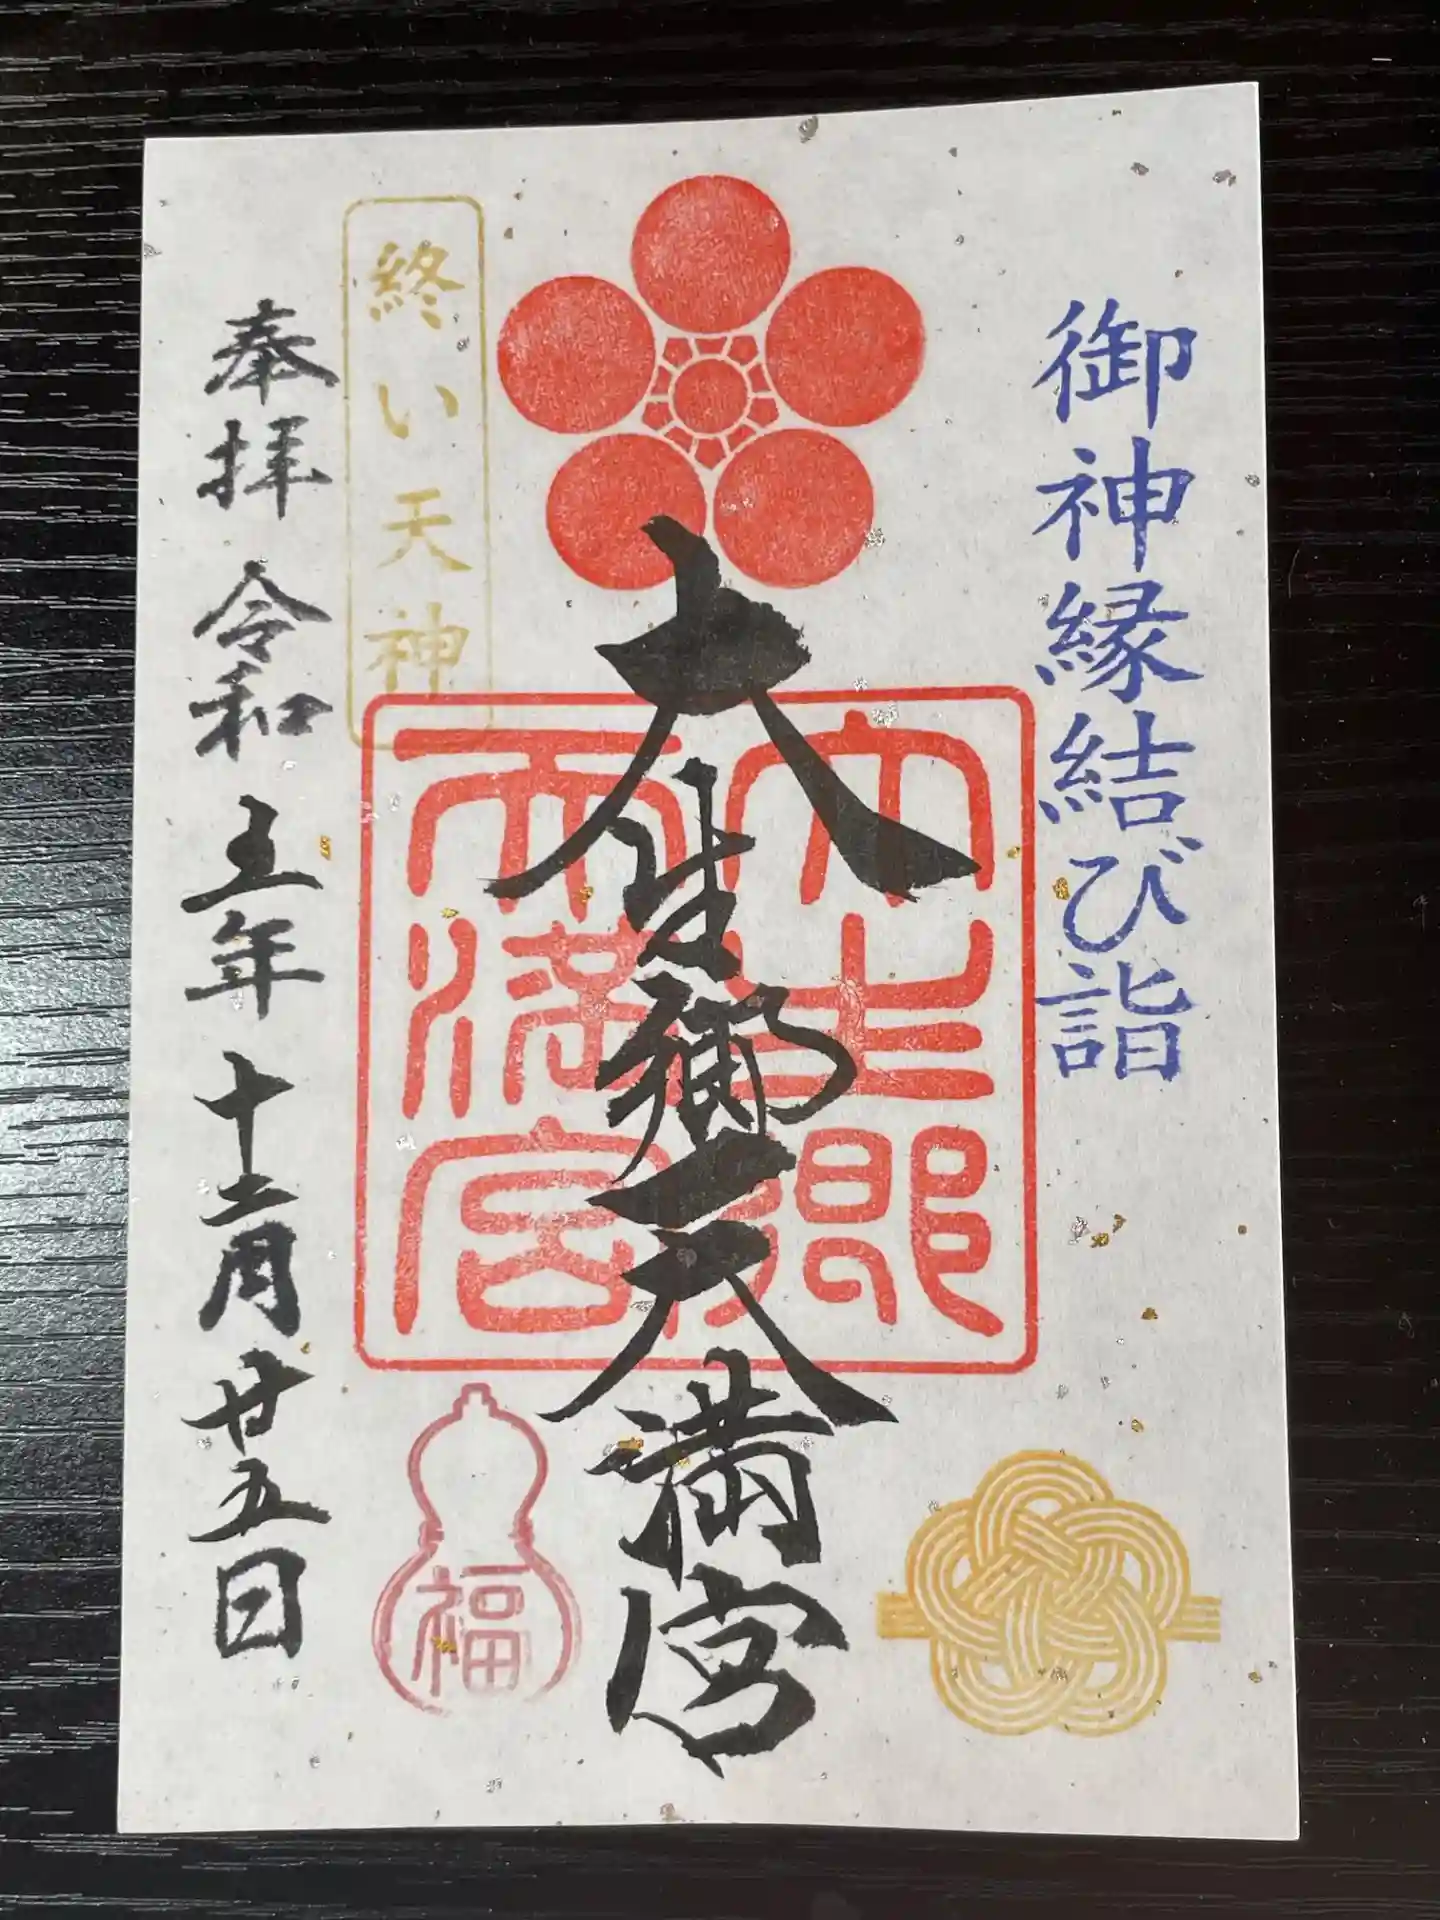 御神縁結び詣
大生郷天満宮
大生郷
天満宮
終い天神
福
奉拝 令和五年十二月廿五日